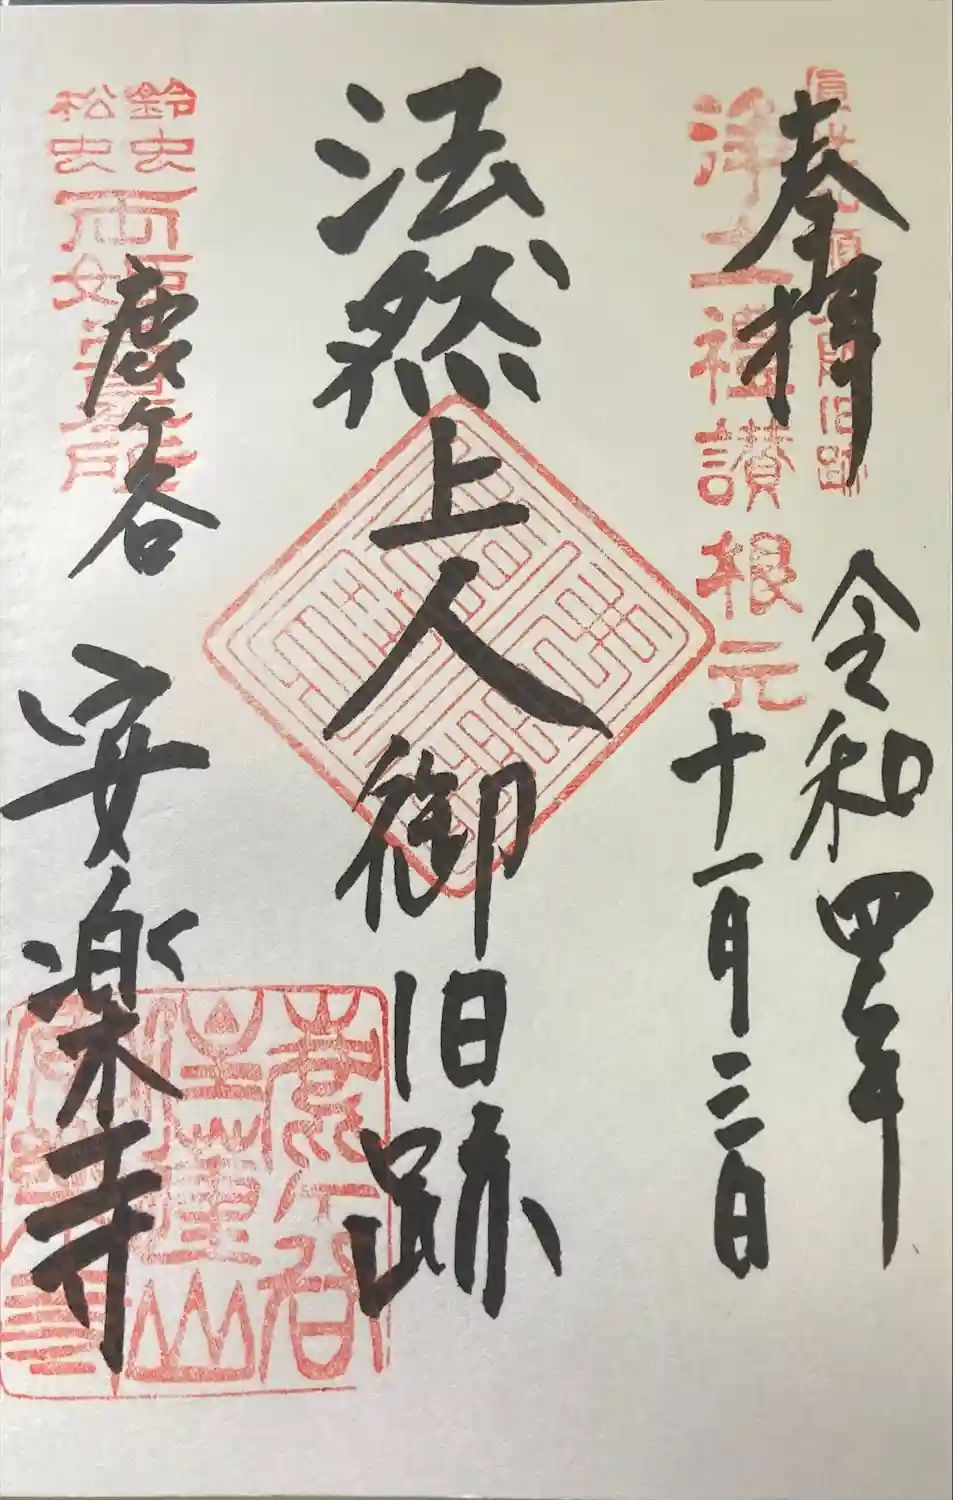 奉拝
令和四年
十一月二日
浄土礼讃根元
法然上人御旧跡
鈴虫
松虫
両姫
鹿ケ谷
安楽寺